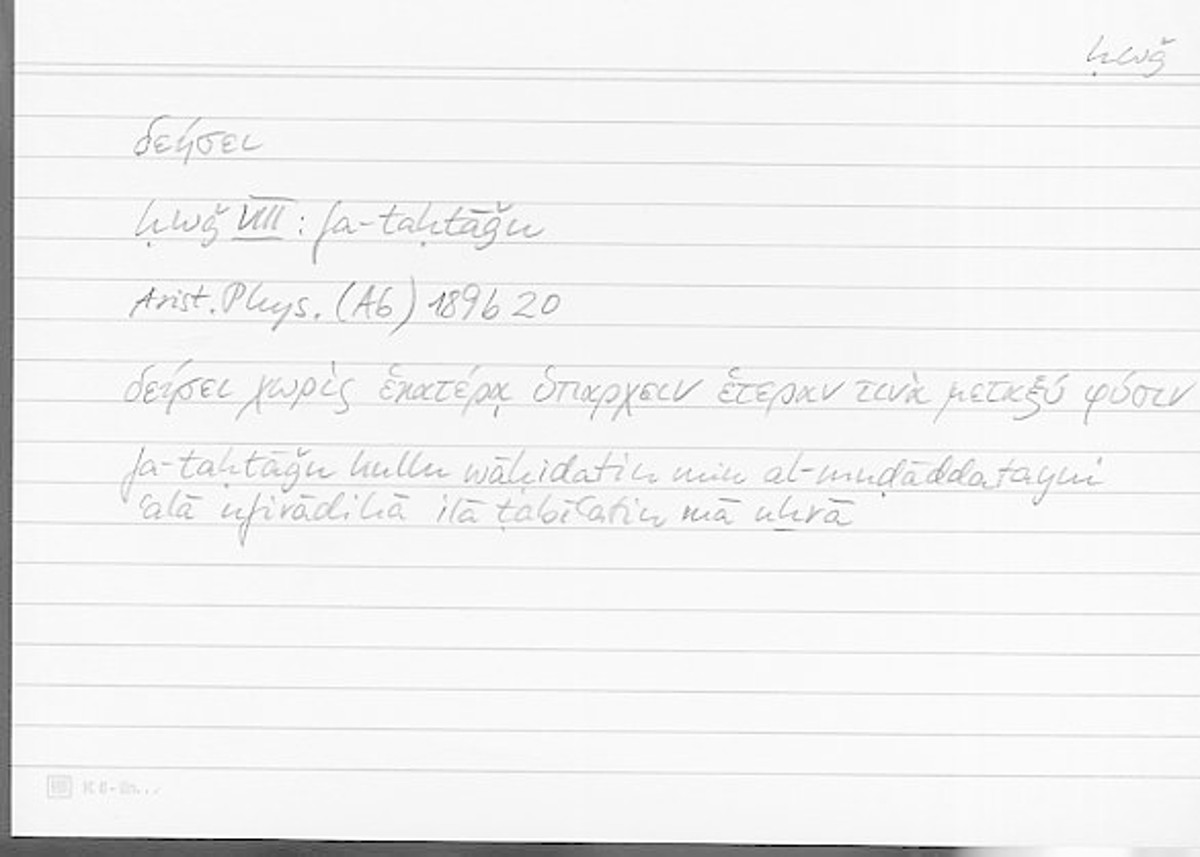 ḥwǧ
δεήσει
ḥwǧ VIII : fa-taḥtāǧu
Arist. Phys. (A6) 189b 20
δεήσει χωρὶς ἑκατέρᾳ ὑπάρχειν ἑτέραν τινὰ μεταξύ φύσιν
fa-taḥtāǧu kullu wāḥidatin min al-muḍāddatayni
ʿalā nfirādihā ilā ṭabīʿatin mā uḫrā